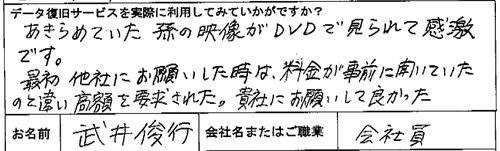 データ復旧サービスを実際に利用してみていかがですか?
あきらめていた 孫の映像がDVDで見られて感激
です。
最初 他社にお願いした時は、料金が事前に聞いていた
のと違い 高額を要求された。貴社にお願いして良かった
お名前 武井俊行 会社名またはご職業 会社員